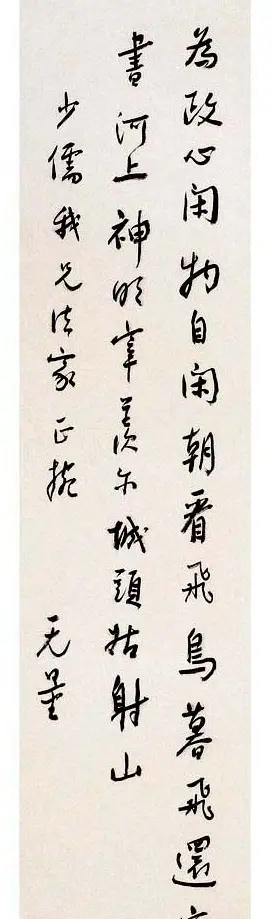 為政心闲物自闲朝看飛鳥暮飛還
書河上神明宰羨尔城頭姑射山
少儒我兄法家正
无量